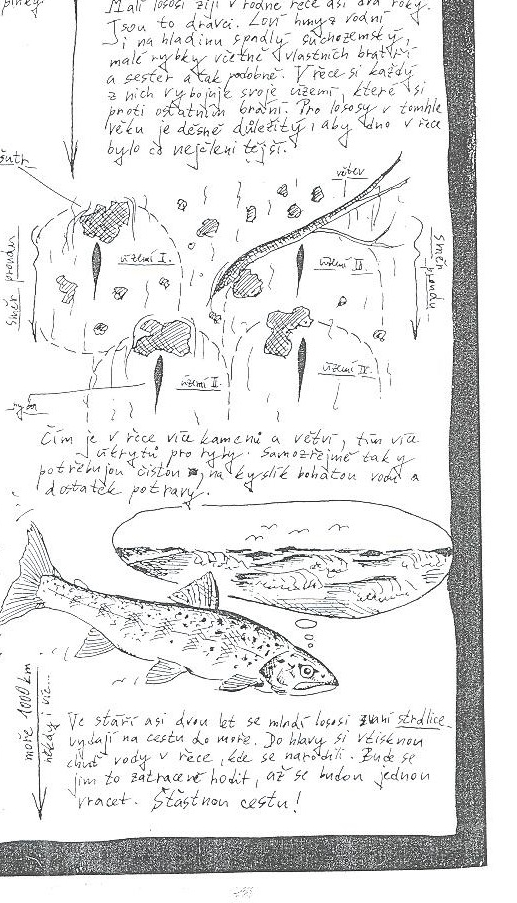 plňky
Malí lososi žijí v rodné řece asi dva roky.
Jsou to dravci. Loví hmyz vodní
i na hladinu spadlý suchozemský,
malé rybky včetně vlastních bratrů
a sester a tak podobně. V řece si každý
z nich vybojuje svoje území, které si
proti ostatním brání. Pro lososy v tomhle
věku je děsně důležitý, aby dno v řece
bylo co nejčlenitější.
šutr
větev
Směr proudu
území I.
území III
Směr proudu
území II.
území IV.
ryba
Čím je v řece více kamenů a větví, tím více
úkrytů pro ryby. Samozřejmě taky
potřebujou čistou, na kyslík bohatou vodu a
dostatek potravy.
moře 1000 km
někdy i víc...
Ve stáří asi dvou let se mladí lososi zvaní strdlice
vydají na cestu do moře. Do hlavy si vtisknou
chuť vody v řece, kde se narodili. Bude se
jim to zatraceně hodit, až se budou jednou
vracet. Šťastnou cestu!